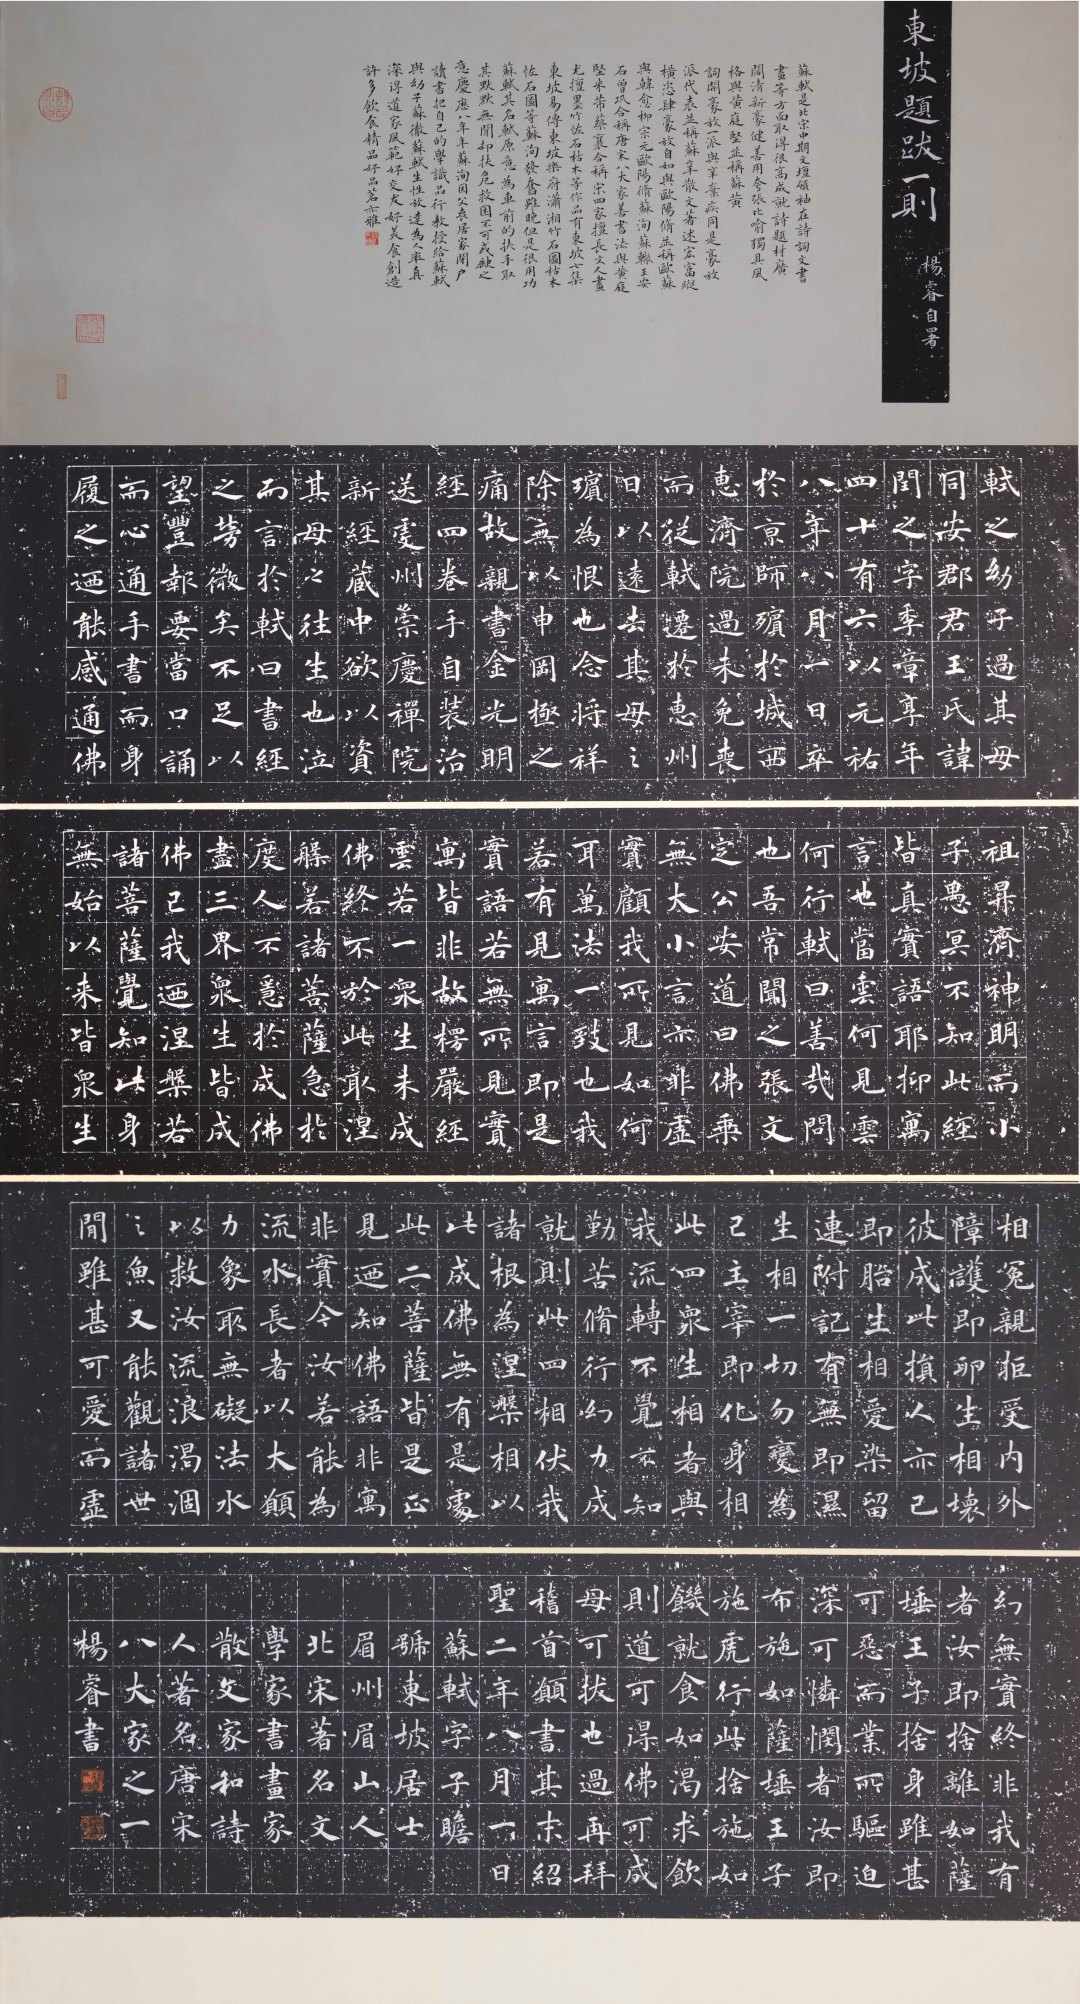 東坡題跋一則
楊睿自署
蘇軾是北宋中期文壇領袖在詩詞文書
畫等方面取得很高成就詩題材廣
闊清新豪健善用夸張比喻獨具風
格與黃庭堅並稱蘇黃
詞開豪放一派與辛棄疾同是豪放
派代表並稱蘇辛散文著述宏富縱
橫恣肆豪放自如與歐陽脩並稱歐蘇
與韓愈柳宗元歐陽脩蘇洵蘇轍王安
石曾鞏合稱唐宋八大家善書法與黃庭
堅米芾蔡襄合稱宋四家擅長文人畫
尤擅墨竹怪石枯木等作品有東坡七集
東坡易傳東坡樂府瀟湘竹石圖枯木
怪石圖等蘇洵發奮雖晚但是很用功
蘇軾其名軾原意為車前的扶手取
其默默無聞卻扶危救困不可或缺之
意慶應八年蘇洵因父喪居家閉户
讀書把自己的學識品行教授給蘇軾
與幼子蘇徹蘇軾生性放達為人率真
深得道家風範好交友好美食創造
許多飲食精品好品茗亦雅
軾之幼子過其母
同安郡君王氏諱
閏之字季章享年
四十有六以元祐
八年八月一日卒
於京師殯於城西
惠濟院過未免喪
而從軾遷於惠州
日以遠去其母之
殯為恨也念將祥
除無以申罔極之
痛故親書金光明
經四卷手自装治
送虔州崇慶禪院
新經藏中欲以資
其母之往生也泣
而言於軾曰書經
之勞微矣不足以
望豐報要當口誦
而心通手書而身
履之迺能感通佛
祖昇濟神明而小
子愚冥不知此經
皆真實語耶抑寓
言也當雲何見雲
何行軾曰善哉問
也吾常聞之張文
定公安道曰佛乘
無大小言亦非虛
實顧我所見如何
耳萬法一致也我
若有見寓言即是
實語若無所見實
寓皆非故楞嚴經
雲若一衆生未成
佛終不於此取涅
槃若諸菩薩急於
度人不急於成佛
盡三界衆生皆成
佛已我迺涅槃若
諸菩薩覺知此身
無始以来皆衆生
相冤親拒受内外
障護即卵生相壞
彼成此損人亦己
即胎生相愛染留
連附記有無即濕
生相一切勿變為
己主宰即化身相
此四衆生相者與
我流轉不覺不知
勤苦脩行幻力成
就則此四相伏我
諸根為涅槃相以
此成佛無有是處
此二菩薩皆是正
見迺知佛語非寓
非實今汝若能為
流水長者以大願
力象取無礙法水
以救汝流浪渴涸
之魚又能觀諸世
間雖甚可愛而虛
幻無實終非我有
者汝即捨離如薩
埵王子捨身雖甚
可惡而業所驅迫
深可憐憫者汝即
布施如薩埵王子
施虎行此捨施如
饑就食如渴求飲
則道可得佛可成
母可拔也過再拜
稽首願書其末紹
聖二年八月一日
蘇軾字子瞻
號東坡居士
眉州眉山人
北宋著名文
學家書畫家
散文家和詩
人著名唐宋
八大家之一
楊睿書